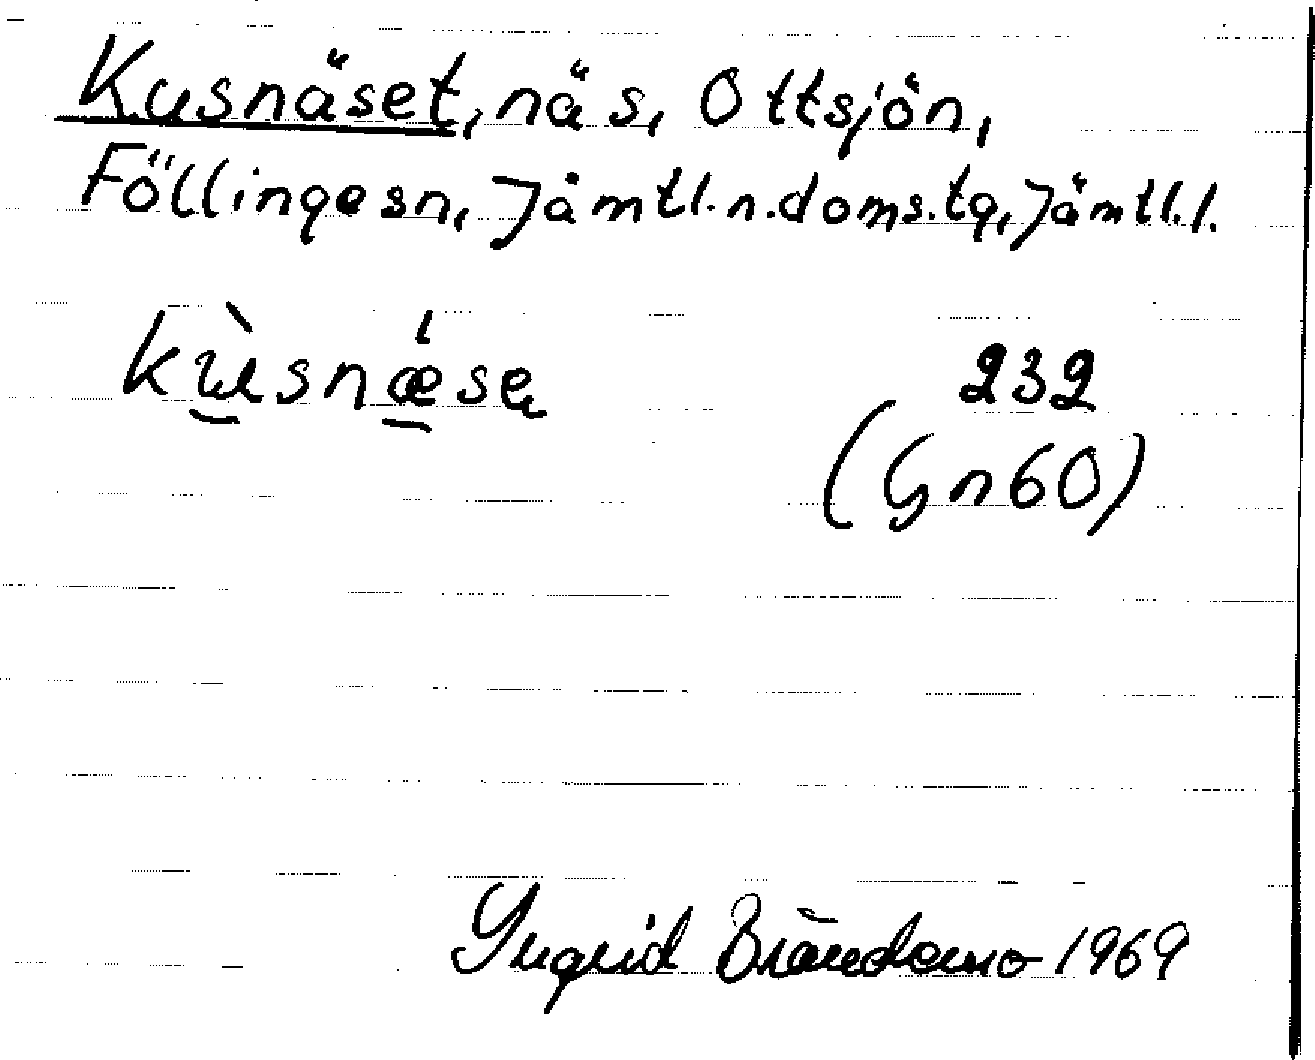 Kusnäset, näs, Ottsjön,
Föllinge sn, Jämtl. n. doms. tg, Jämtl. l.
kùsnǽse 232
(Gn60)
Ingrid Brändemo 1969